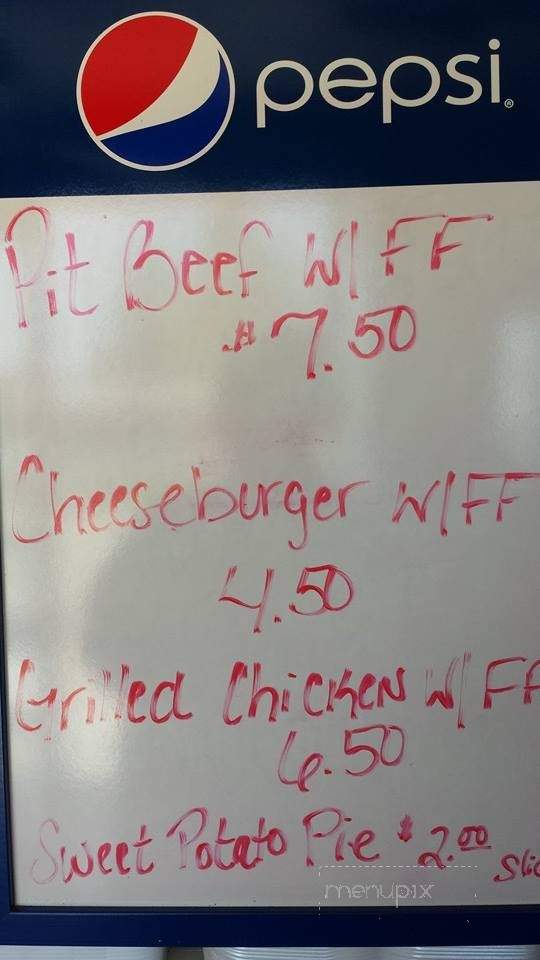 pepsi
Pit Beef W/FF
$7.50
Cheeseburger W/FF
4.50
Grilled Chicken W/FF
6.50
Sweet Potato Pie $2.00
menupix